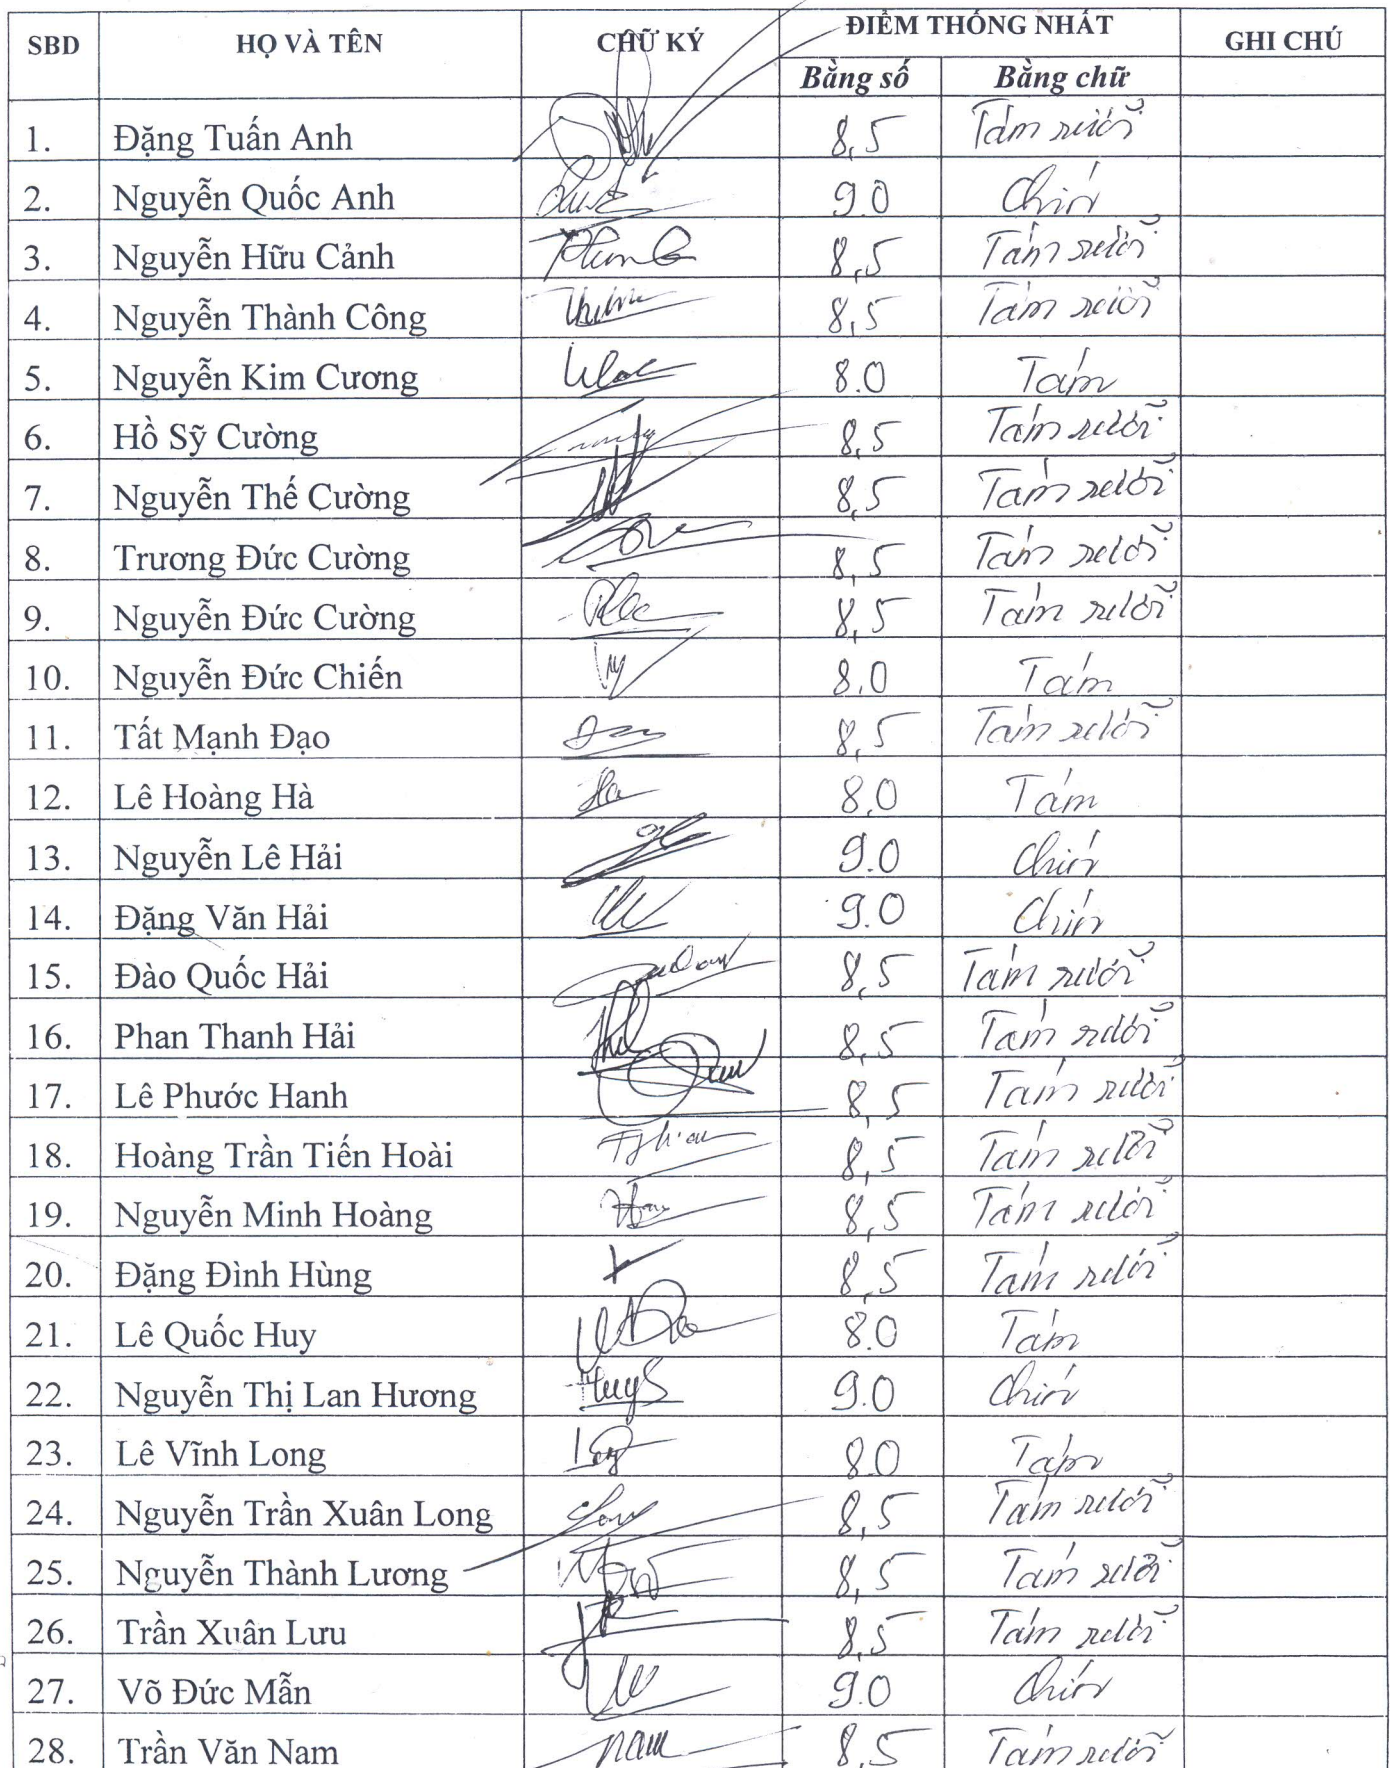 SBD HỌ VÀ TÊN CHỮ KÝ ĐIỂM THỐNG NHẤT GHI CHÚ
Bằng số Bằng chữ
1. Đặng Tuấn Anh 8,5 Tám rưỡi
2. Nguyễn Quốc Anh 9.0 Chín
3. Nguyễn Hữu Cảnh 8,5 Tám rưỡi
4. Nguyễn Thành Công 8,5 Tám rưỡi
5. Nguyễn Kim Cương 8.0 Tám
6. Hồ Sỹ Cường 8,5 Tám rưỡi
7. Nguyễn Thế Cường 8,5 Tám rưỡi
8. Trương Đức Cường 8,5 Tám rưỡi
9. Nguyễn Đức Cường 8,5 Tám rưỡi
10. Nguyễn Đức Chiến 8.0 Tám
11. Tất Mạnh Đạo 8,5 Tám rưỡi
12. Lê Hoàng Hà 8,0 Tám
13. Nguyễn Lê Hải 9.0 Chín
14. Đặng Văn Hải 9.0 Chín
15. Đào Quốc Hải 8,5 Tám rưỡi
16. Phan Thanh Hải 8,5 Tám rưỡi
17. Lê Phước Hanh 8,5 Tám rưỡi
18. Hoàng Trần Tiến Hoài 8,5 Tám rưỡi
19. Nguyễn Minh Hoàng 8,5 Tám rưỡi
20. Đặng Đình Hùng 8,5 Tám rưỡi
21. Lê Quốc Huy 8.0 Tám
22. Nguyễn Thị Lan Hương 9.0 Chín
23. Lê Vĩnh Long 8.0 Tám
24. Nguyễn Trần Xuân Long 8,5 Tám rưỡi
25. Nguyễn Thành Lương 8,5 Tám rưỡi
26. Trần Xuân Lưu 8,5 Tám rưỡi
27. Võ Đức Mẫn 9.0 Chín
28. Trần Văn Nam nam 8,5 Tám rưỡi